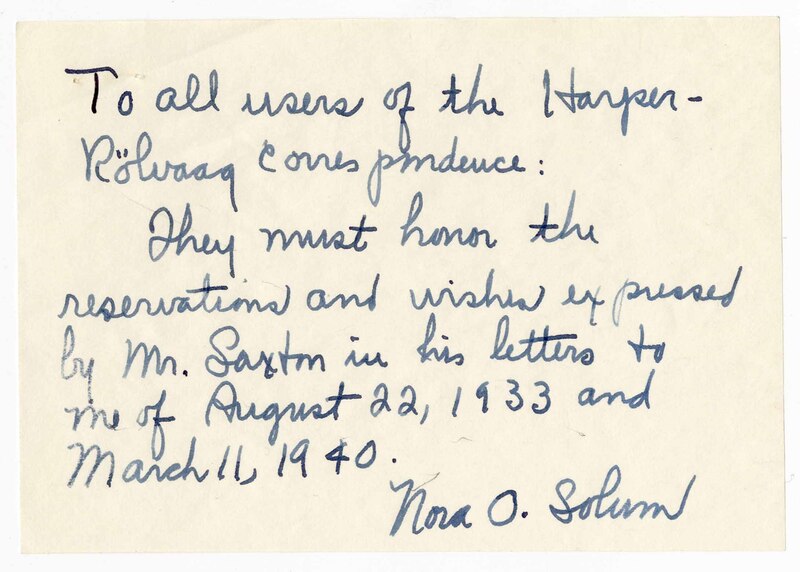 To all users of the Harper-
Rölvaag correspondence:
They must honor the
reservations and wishes expressed
by Mr. Saxton in his letters to
me of August 22, 1933 and
March 11, 1940.
Nora O. Solum